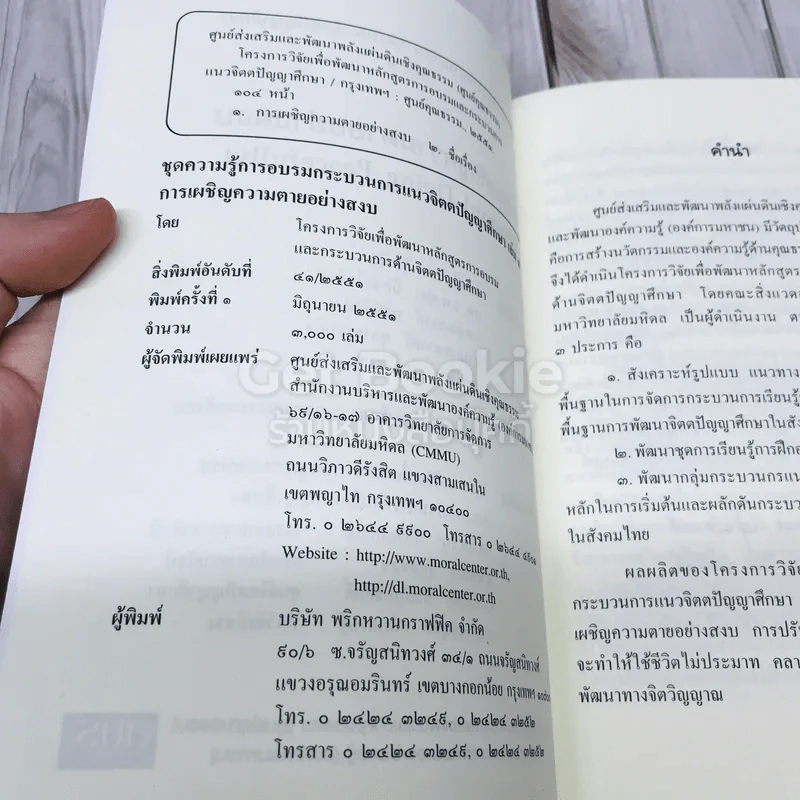 ศูนย์ส่งเสริมและพัฒนาพลังแผ่นดินเชิงคุณธรรม (ศูนย์คุณธรรม)
โครงการวิจัยเพื่อพัฒนาหลักสูตรการอบรมและกระบวนการ
แนวจิตตปัญญาศึกษา / กรุงเทพฯ : ศูนย์คุณธรรม., ๒๕๕๑
๑๐๔ หน้า
๑. การเผชิญความตายอย่างสงบ ๒. ชื่อเรื่อง
ชุดความรู้การอบรมกระบวนการแนวจิตตปัญญาศึกษา
การเผชิญความตายอย่างสงบ
โดย โครงการวิจัยเพื่อพัฒนาหลักสูตรการอบรม
และกระบวนการด้านจิตตปัญญาศึกษา
สิ่งพิมพ์อันดับที่ ๔๑/๒๕๕๑
พิมพ์ครั้งที่ ๑ มิถุนายน ๒๕๕๑
จำนวน ๓,๐๐๐ เล่ม
ผู้จัดพิมพ์เผยแพร่ ศูนย์ส่งเสริมและพัฒนาพลังแผ่นดินเชิงคุณธรรม
สำนักงานบริหารและพัฒนาองค์ความรู้ (องค์การมหาชน)
๖๙/๑๖-๑๗ อาคารวิทยาลัยการจัดการ
มหาวิทยาลัยมหิดล (CMMU)
ถนนวิภาวดีรังสิต แขวงสามเสนใน
เขตพญาไท กรุงเทพฯ ๑๐๔๐๐
โทร. ๐ ๒๖๔๔ ๙๙๐๐ โทรสาร ๐ ๒๖๔๔ ๔๙๐๑
Website : http://www.moralcenter.or.th,
http://dl.moralcenter.or.th
ผู้พิมพ์ บริษัท พริกหวานกราฟฟิค จำกัด
๙๐/๖ ซ.จรัญสนิทวงศ์ ๓๔/๑ ถนนจรัญสนิทวงศ์
แขวงอรุณอมรินทร์ เขตบางกอกน้อย กรุงเทพฯ ๑๐๗๐๐
โทร. ๐ ๒๔๒๔ ๓๒๔๙, ๐ ๒๔๒๔ ๓๒๕๒
โทรสาร ๐ ๒๔๒๔ ๓๒๔๙, ๐ ๒๔๒๔ ๓๒๕๒
Get Bookie
ร้านหนังสือบุคกี้
คำนำ
ศูนย์ส่งเสริมและพัฒนาพลังแผ่นดินเชิง
และพัฒนาองค์ความรู้ (องค์การมหาชน) มีวัตถุป
คือการสร้างนวัตกรรมและองค์ความรู้ด้านคุณธร
จึงได้ดำเนินโครงการวิจัยเพื่อพัฒนาหลักสูตร
ด้านจิตตปัญญาศึกษา โดยคณะสิ่งแวด
มหาวิทยาลัยมหิดล เป็นผู้ดำเนินงาน ต
๓ ประการ คือ
๑. สังเคราะห์รูปแบบ แนวทาง
พื้นฐานในการจัดการกระบวนการเรียนรู้
พื้นฐานการพัฒนาจิตตปัญญาศึกษาในสัง
๒. พัฒนาชุดการเรียนรู้การฝึกอ
๓. พัฒนากลุ่มกระบวนกรแน
หลักในการเริ่มต้นและผลักดันกระบว
ในสังคมไทย
ผลผลิตของโครงการวิจัย
กระบวนการแนวจิตตปัญญาศึกษา
เผชิญความตายอย่างสงบ การปรับ
จะทำให้ใช้ชีวิตไม่ประมาท คลา
พัฒนาทางจิตวิญญาณ